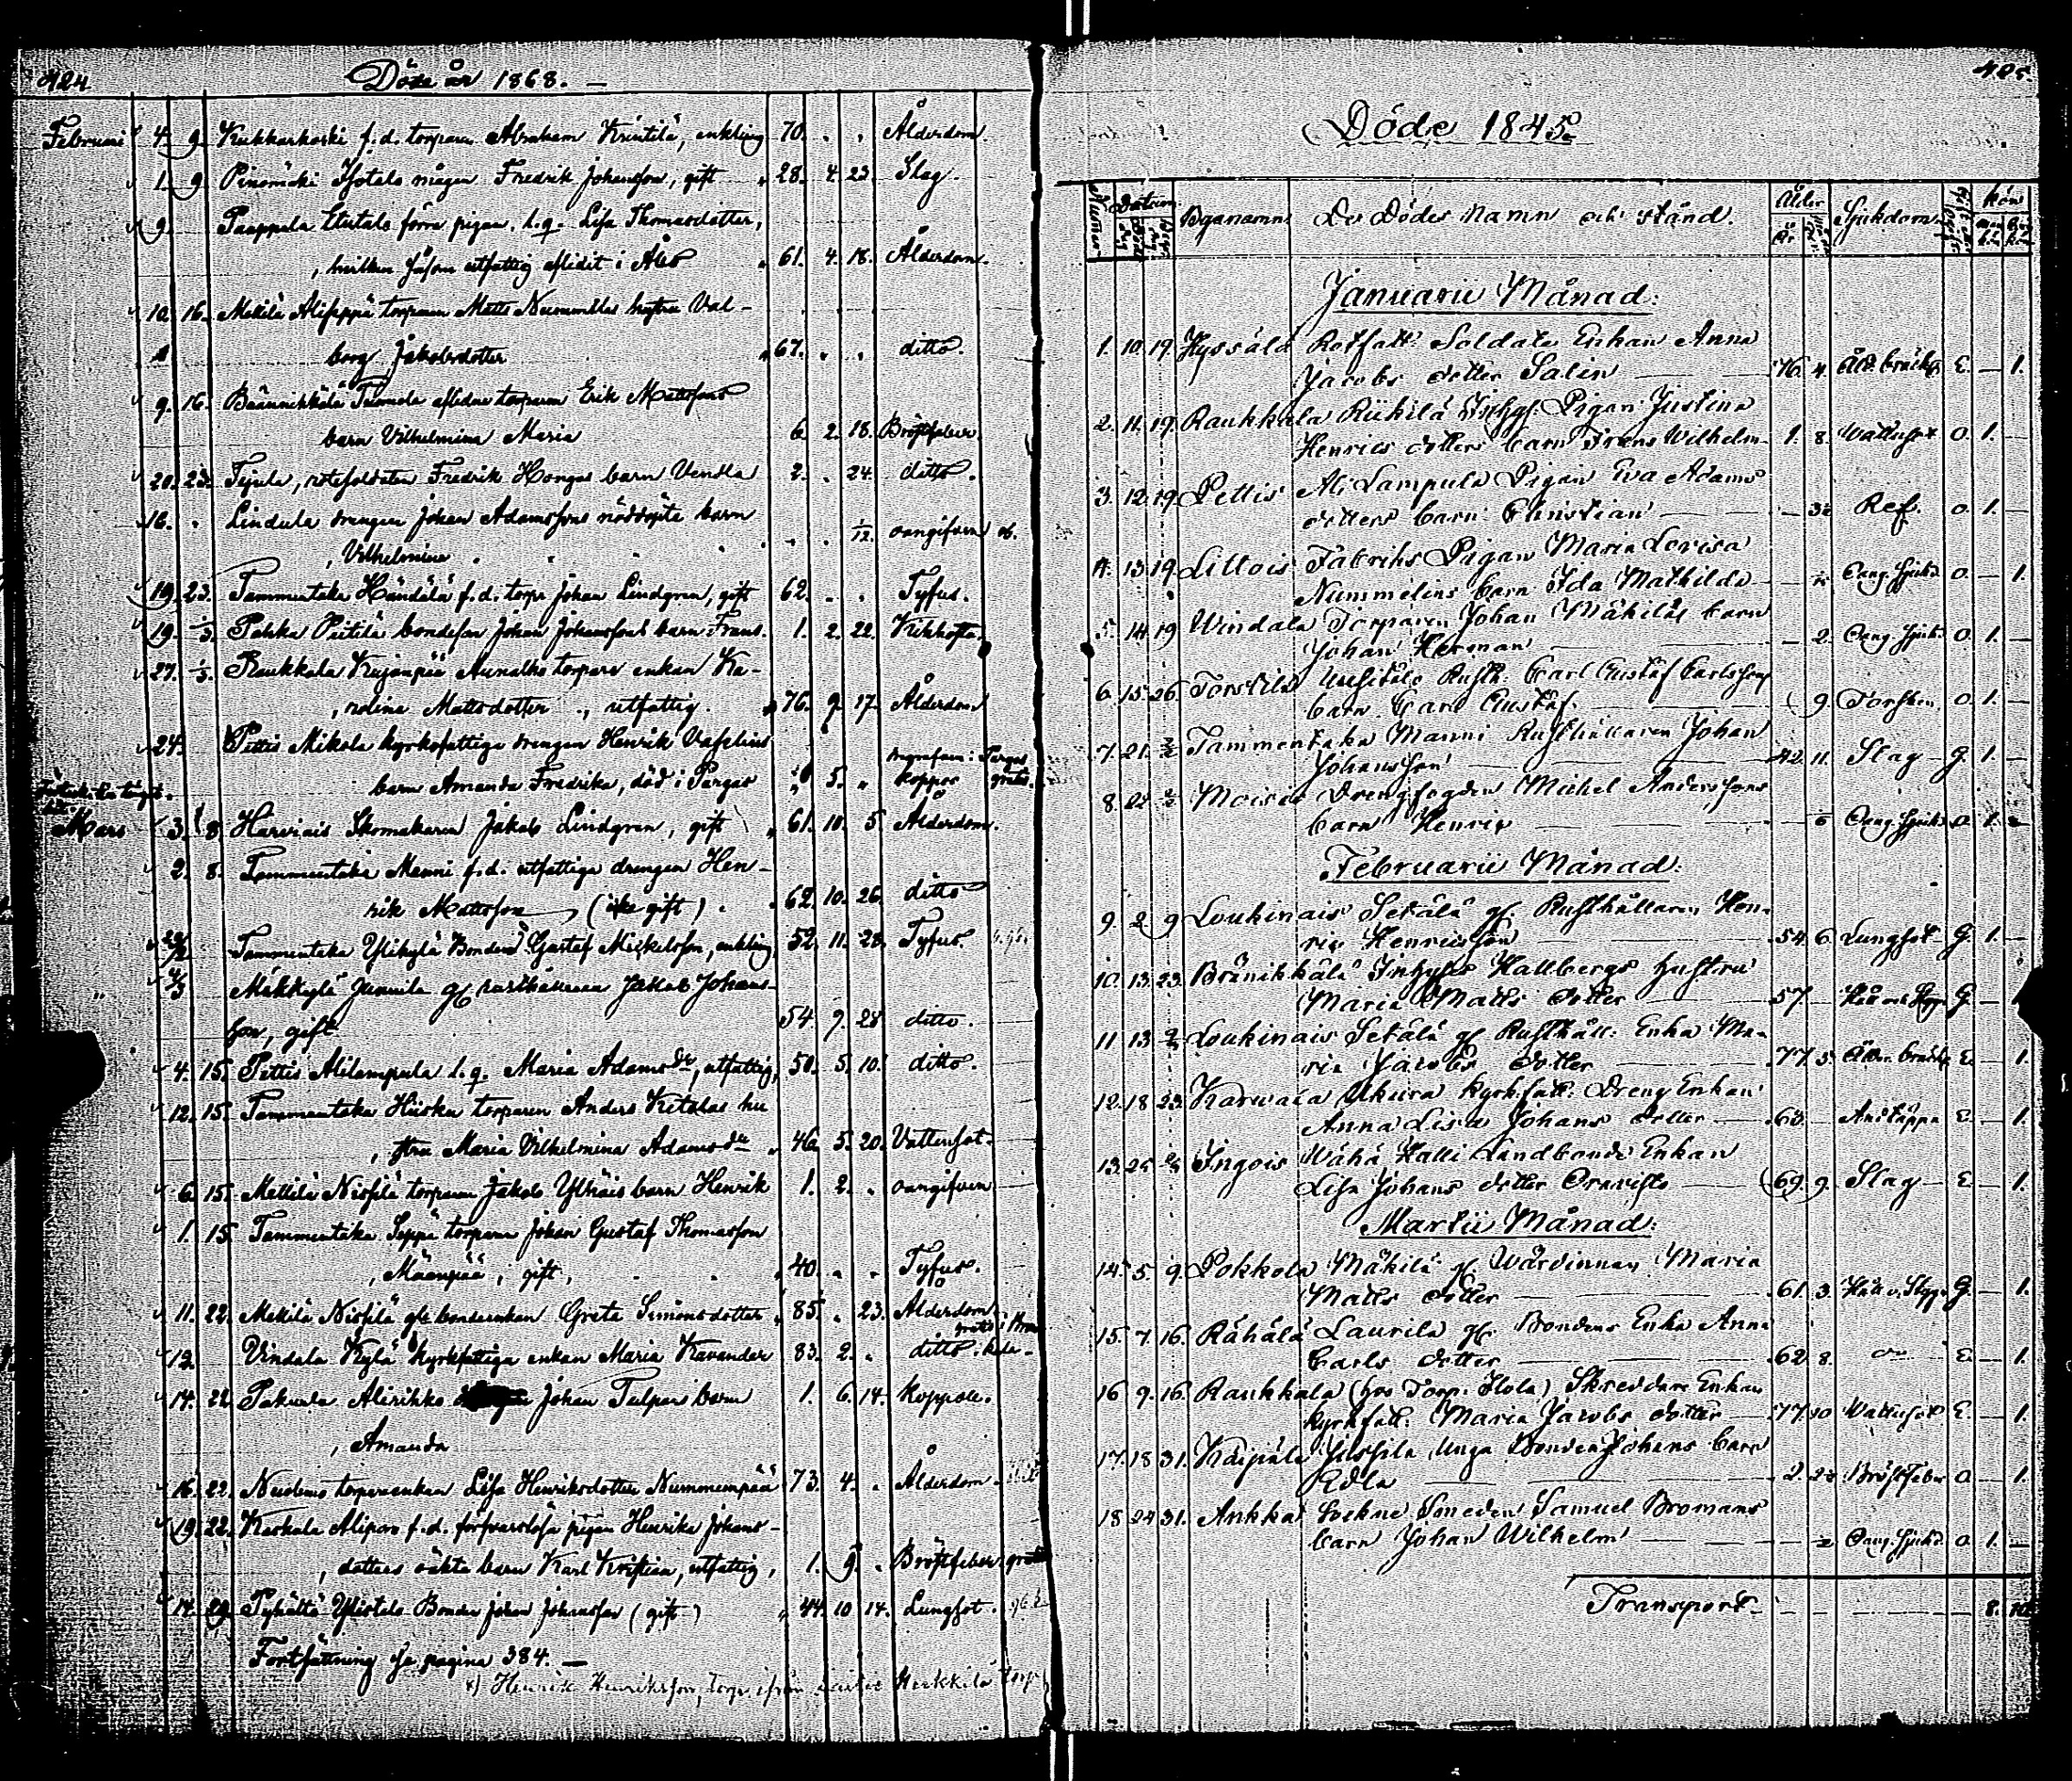 424 Döde år 1868. —
Februari 4. 9. Kukkarkoski f. d. torparen Abraham Krintilä, enkling 70. Ålderdom.
1. 9. Pinomäki Isotalo mågen Fredrik Johansson, gift 28. 4. 23. Slag.
9. Paappala förra pigan, l. q. Lisa Thomasdotter,
hvilken såsom utfattig aflidit i Åbo 61. 4. 18. Ålderdom.
10. 16. Mettilä torparen Matts hustru Val-
borg Jakobsdotter 67. ditto.
9. 16. Brännikkälä aflidne torparen Erik Mattssons
barn Vilhelmina Maria 6. 2. 18. Bröstfeber.
20. 23. rotesoldaten Fredrik Hongas barn Vendla 2. 24. ditto.
16. Lindula drengen Johan Adamssons nöddöpta barn
Vilhelmina 1/12. oangifven
19. 23. Tammentaka Händälä f. d. torp. Johan Lindgren, gift 62. Tyfus.
19. 1/3. Pahka Piitilä bondeson Johan Johanssons barn Frans. 1. 2. 22. Kikhosta.
27. 1/3. Raukkala Kujanpää torpare enkan Ka-
rolina Mattsdotter, utfattig. 76. 9. 17. Ålderdom
24. Pettis Mikola kyrkofattige drengen Henrik Vaselius
barn Amanda Fredrika, död i Pargas 5. koppor begrafven i Pargas gratis.
Mars 3. 8. Harviais Skomakaren Jakob Lindgren, gift 61. 10. 5. Ålderdom.
2. 8. Tammentaka Manni f. d. utfattige drengen Hen-
rik Mattsson (icke gift). 62. 10. 26. ditto
Tammentaka Ylikylä Bonden Gustaf Mickelsson, enkling, 52. 11. 28. Tyfus.
4/3 Mäkkylä Junnila gl. rusthållaren Jakob Johans-
son, gift 54. 9. 28. ditto.
4. 15. Pettis Alilampula l. q. Maria Adamsdr, utfattig, 50. 5. 10. ditto.
12. 15. Tammentaka Hiiska torparen Anders Ketolas hu
stru Maria Vilhelmina Adamsdr 46. 5. 20. Vattusot.
6. 15. Mettilä Nissilä torparen Jakob barn Henrik 1. 2. oangifven
1. 15. Tammentaka Seppä torparen Johan Gustaf Thomasson
Mäenpää, gift, 40. Tyfus.
11. 22. Mettilä Nissilä gl. bondeenkan Greta Simonsdotter 85. 23. Ålderdom.
12. Vindala Kylä kyrkfattiga enkan Maria Kavander 83. 2. ditto.
14. 22. Alirihko Johan Tulpas barn 1. 6. 14. Koppor.
Amanda
16. 22. torpareenkan Lisa Henriksdotter Nummenpää 73. 4. Ålderdom.
19. 22. Kaskala f. d. försvarslösa pigan Henrika Johans-
dotters oäkta barn Karl Kristian, utfattig, 1. 9. Bröstfeber gratis
14. 29. Bonden Johan Johansson (gift) 44. 10. 14. Lungsot.
Fortsättning se pagina 384. —
x) Henrik Henriksson, torp.
425.
Döde 1845.
Numer Datum Byanamn De Dödes namn och stånd. Ålder Sjukdom kön
Januarii Månad:
1. 10. 19. Hyssälä Rotfatt. Soldats Enkan Anna
Jacobs dotter Salin 76. 4. Åld. bräckl. E. — 1.
2. 11. 19. Raukkala Riikilä Inhys. Pigan Justina
Henrics dotters barn Frans Wilhelm 1. 8. Wattusot O. 1. —
3. 12. 19. Pettis Ali Lampula Pigan Eva Adams
dotters barn Christian Ref. O. 1. —
4. 13. 19. Littois Fabriks Pigan Maria Lovisa
Nummelins barn Ida Mathilda Oang. Sjukd. O. — 1.
5. 14. 19 Windala Torparen Johan Mäkiläs barn
Johan Herman — 2. Oang. Sjuk. O. 1. —
6. 15. 26. Torstila Uusitalo Rusth. Carl Gustaf Carlssons
barn Carl Gustaf. 9. Torsken O. 1. —
7. 21. Tammentaka Manni Rusthållaren Johan
Johansson 42. 11. Slag G. 1. —
8. Moisio Drengfogden Michel Anderssons
barn Henric Oang. Sjukd. O. 1.
Februarii Månad:
9. 2. 9 Loukinais Setälä gl. Rusthållaren Hen-
ric Henricsson 54. 6. Lungsot G. 1. —
10. 13. 23. Bränikkälä Inhyses Hallbergs hustru
Maria Matts dotter 57. — Håll och Styng G. —
11. 13 Loukinais Setälä gl. Rusthåll. Enka Ma-
ria Jacobs dotter 77. 3. Ålder. bräckl. E. — 1.
12. 18. 23. Karwala Ukura Kyrkfatt. Dreng Enkan
Anna Lisa Johans dotter 63. Andtäppa E. — 1.
13. 25. Ingois Wähä Halli Landbonde Enkan
Lisa Johans dotter 69. 9. Slag E. — 1.
Martii Månad:
14. 5. 9. Pokkola Mäkilä gl. Wärdinnan Maria
Matts dotter 61. 3. Håll o. Styng G. — 1.
15. 7. 16. Rähälä Laurila gl. Bondens Enka Anna
Carls dotter 62. 8. E. — 1.
16 9. 16. Raukkala (hos Torp. Ilola) Skreddare Enkan
kyrkfatt. Maria Jacobs dotter 77. 10 Wattusot E. — 1.
17. 18. 31. Kaipiala Jussila Unga Bonden Johans barn
Edla 2. Bröstfeber O. — 1.
18 24 31. Ankka Sockne Smeden Samuel Bromans
barn Johan Wilhelm Oang. Sjukd. O. 1. —
Transport 8. 10.